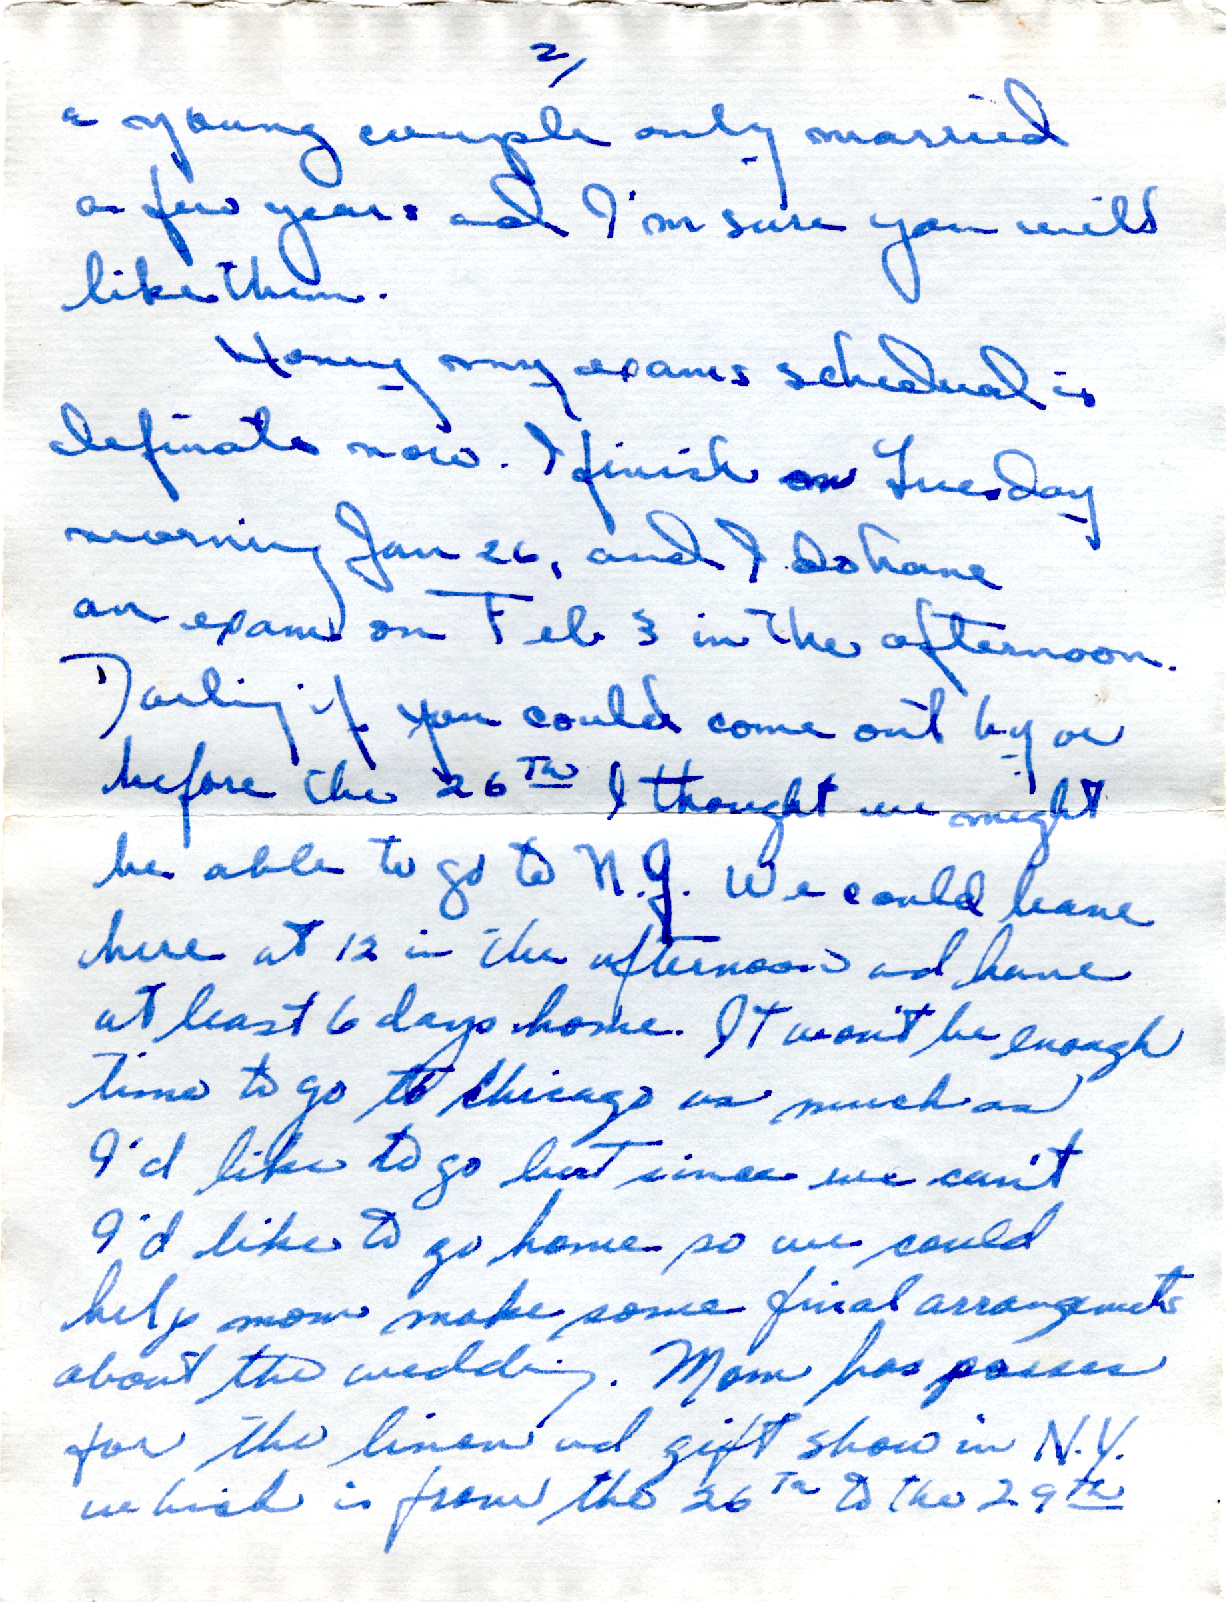 2/
a young couple only married
a few years and I'm sure you will
like them.
Honey my exams schedual is
definate now. I finish on Tuesday
morning Jan 26, and I do have
an exam on Feb 3 in the afternoon.
Darling if you could come out by or
before the 26th I thought we might
be able to go to N.J. We could leave
here at 12 in the afternoon and have
at least 6 days home. It won't be enough
time to go to Chicago as much as
I'd like to go but since we can't
I'd like to go home so we could
help mom make some final arrangements
about the wedding. Mom has passes
for the linen and gift show in N.Y.
which is from the 26th to the 29th